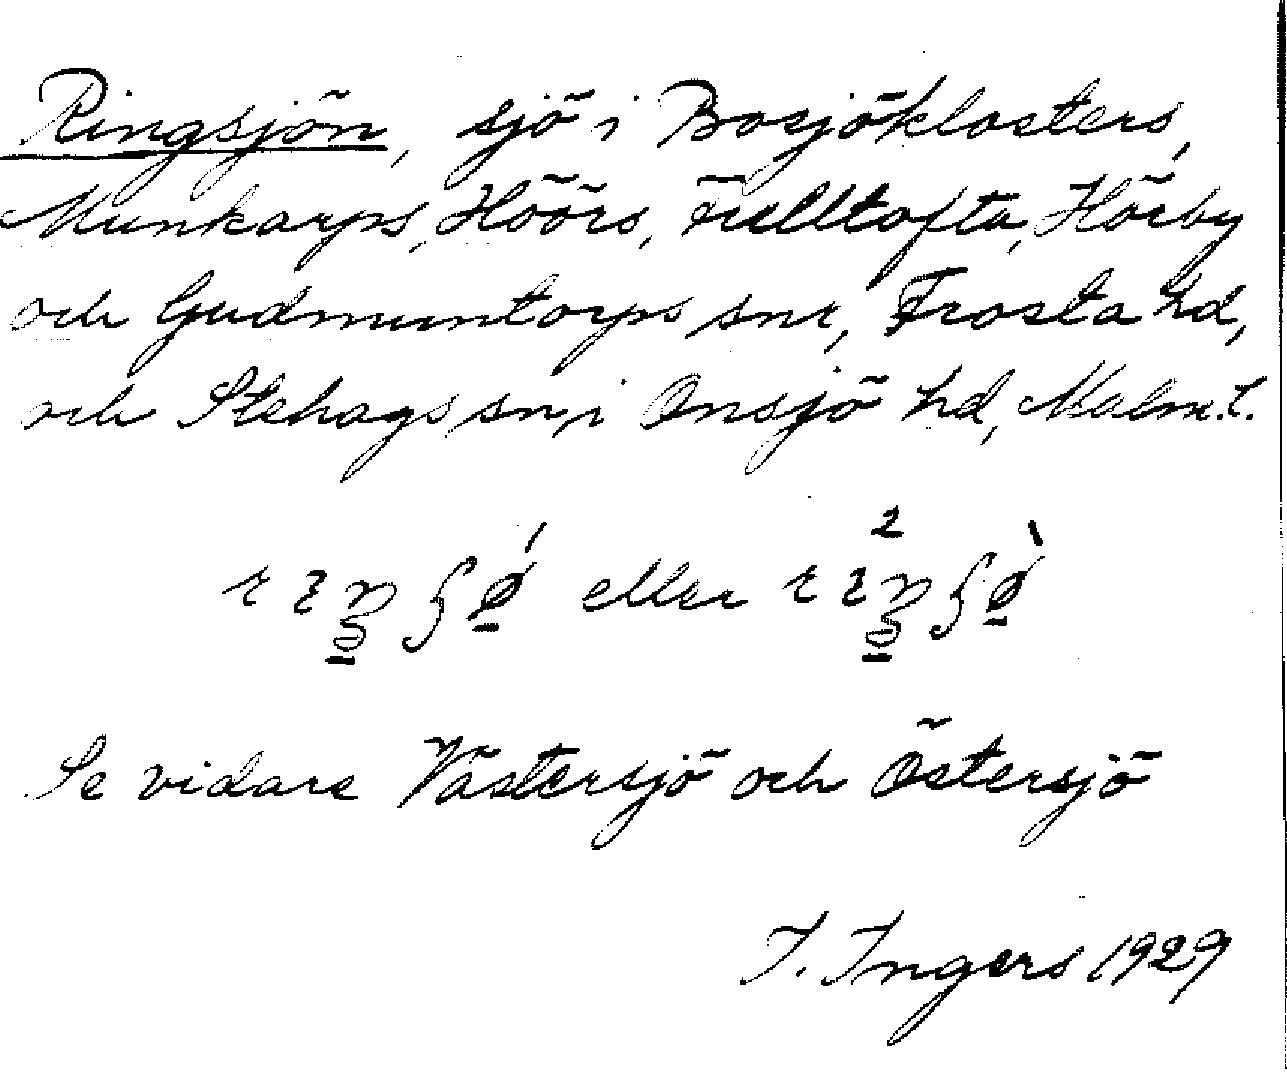 Ringsjön, sjö i Bosjöklosters,
Munkarps, Höörs, Fulltofta, Hörby
och Gudmuntorps snr, Frosta hd,
och Stehags sn, i Onsjö hd, Malm. l.
eller
Se vidare Västersjö och Östersjö
I. Ingers 1929